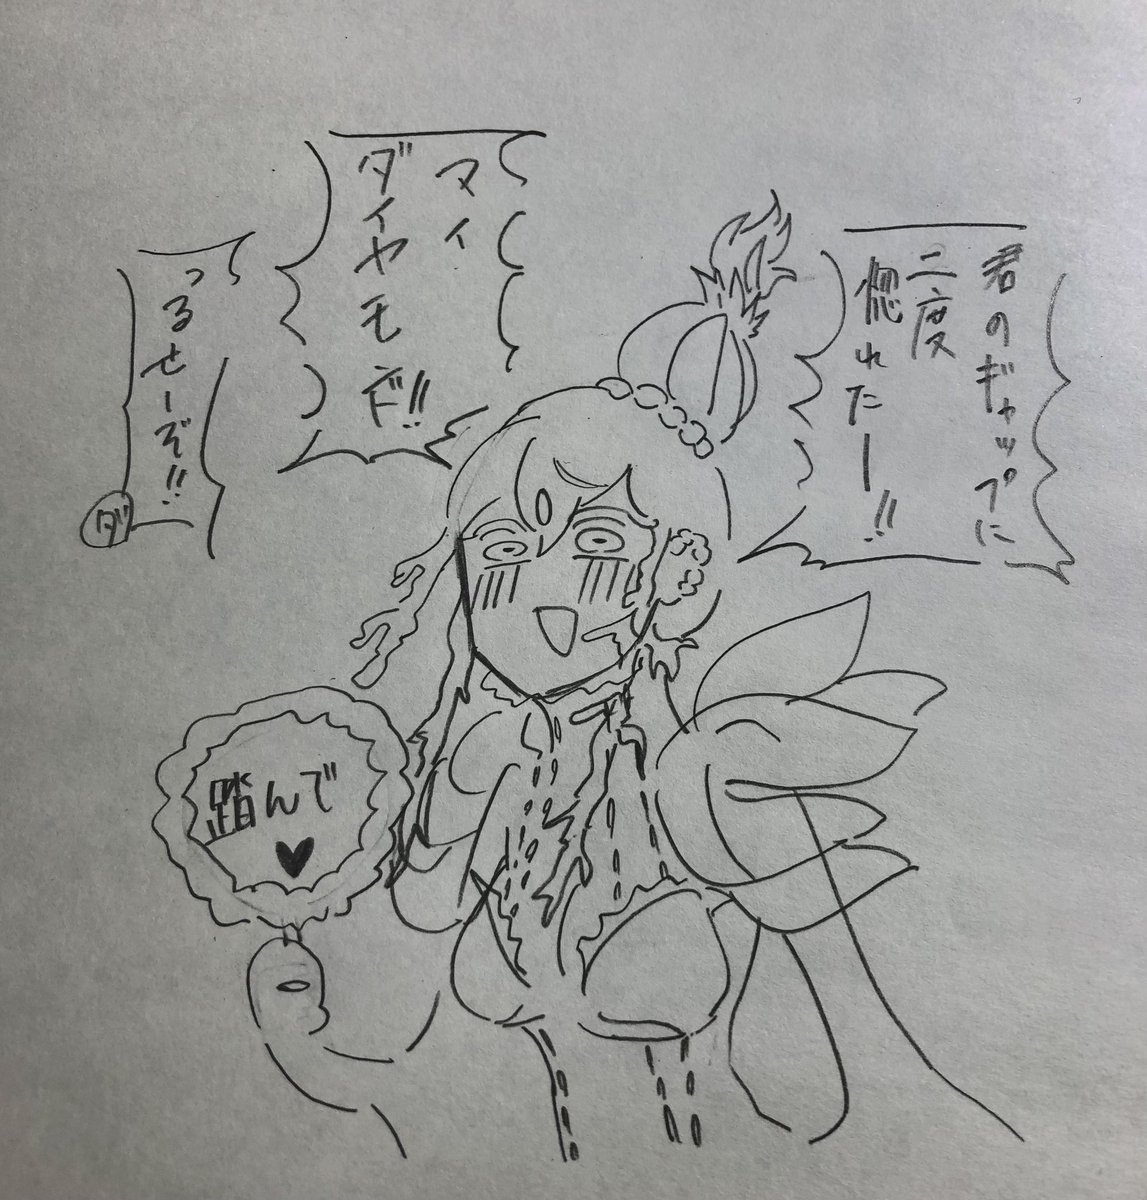 君のギャップに
二度
惚れたー!!
マイ
ダイヤモンド!!
っるせーぞ!!
ダ
踏んで
♥